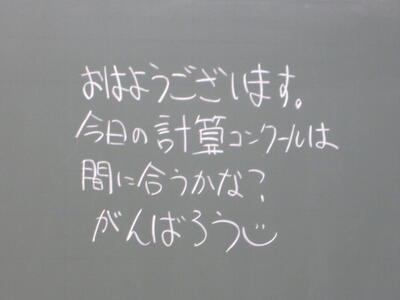 おはようございます。
今日の計算コンクールは
間に合うかな?
がんばろう